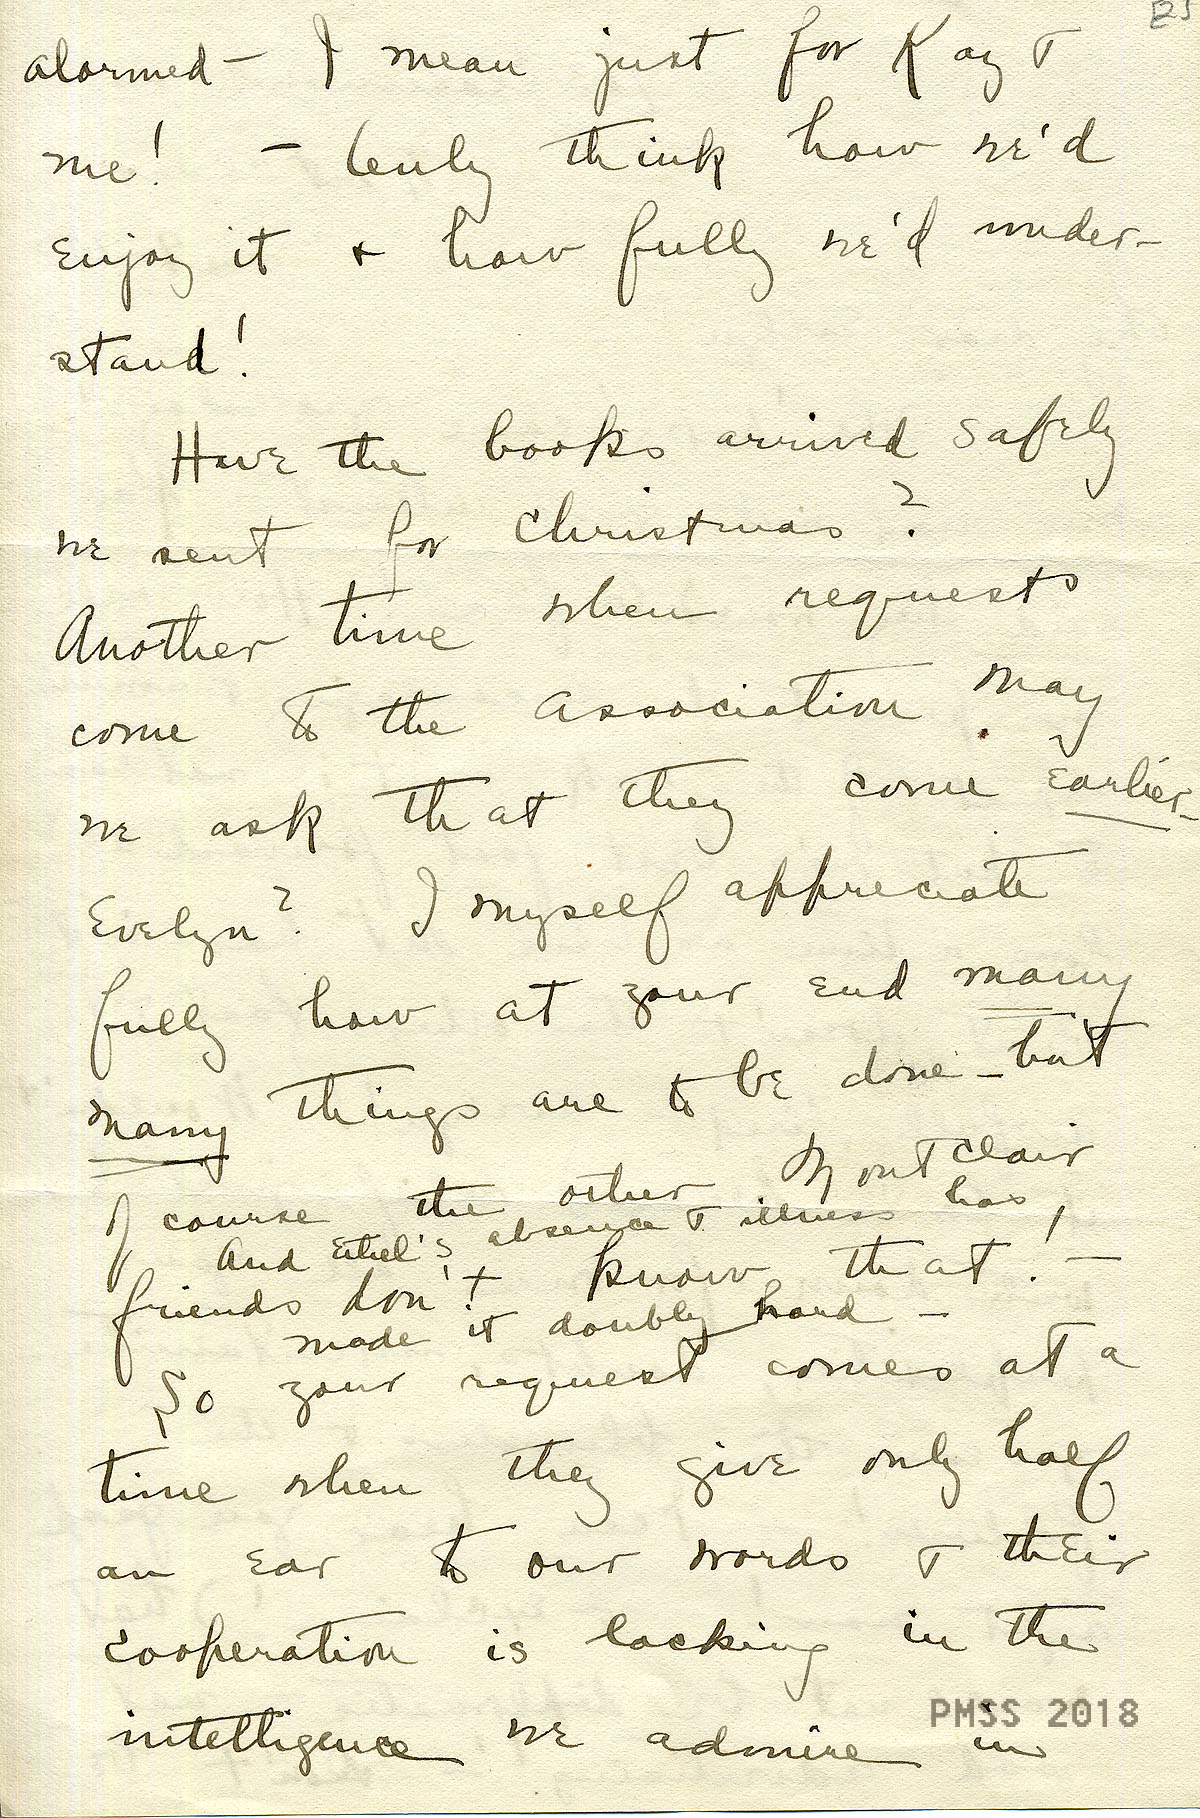 [2]
alarmed — I mean just for Kay &
me! — truly think how we'd
enjoy it & how fully we'd under-
stand!
Have the books arrived safely
we sent for Christmas?
Another time when requests
come to the Association may
we ask that they come earlier
Evelyn? I myself appreciate
fully how at your end many
many things are to be done — but
of course the other Montclair
And Ethel's absence & illness has,
friends don't know that! —
made it doubly hard —
So your request comes at a
time when they give only half
an ear to our words & their
cooperation is lacking in the
PMSS 2018
intelligence we admire in